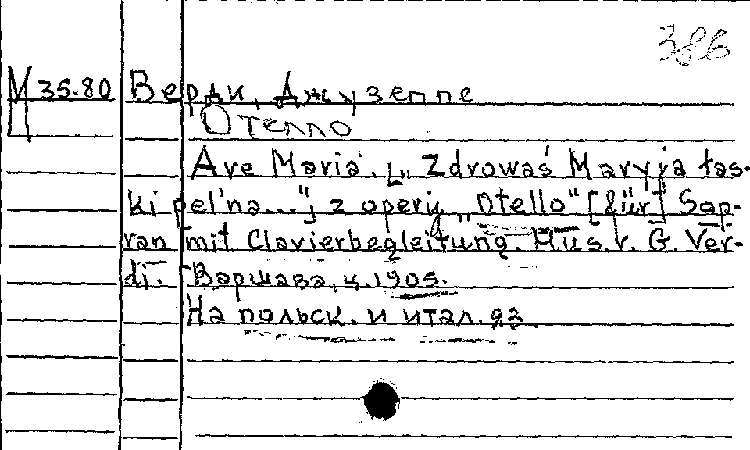 386
М 35.80 Верди, Джузеппе
Отелло
Ave Maria. [„Zdrowaś Maryja łas-
ki pel'na..."] z opery „Otello" [für] Sop-
ran mit Clavierbegleitung. Mus. v. G. Ver-
di. Варшава, ц. 1905.
На польск. и итал. яз.